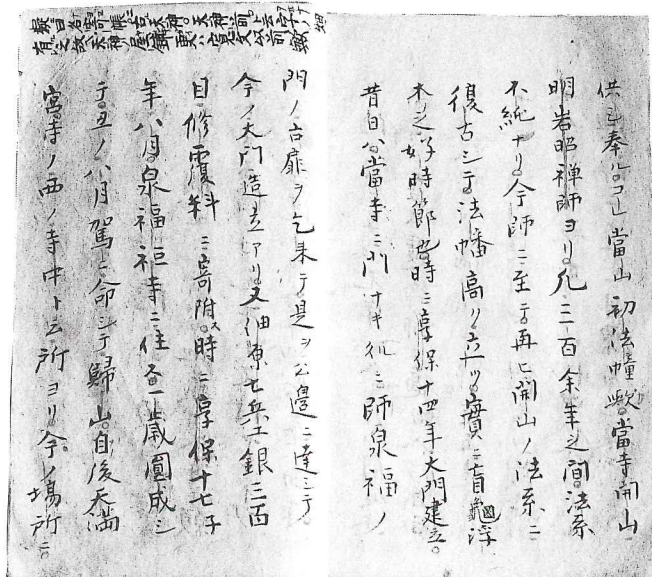 供シ奉ルコレ當山初法幢歟。當寺開山
明岩昭禅師ヨリ。凡三百余年之間法系
不絶ナリ。今師ニ至テ再ヒ開山ノ法系ニ
復古シテ。法幡高ク立ツ。實ニ盲龜浮
木之好時節也時ニ享保十四年大門建立。
昔日ハ當寺ニ門ナキ処ニ師泉福ノ
門ノ古扉ヲ乞来テ是ヲ公邉ニ達シテ。
今ノ大門造立アリ。又油原七兵エ銀三百
目修覆料ニ寄附ス時ニ享保十七子
年八月。泉福祖寺ニ住番一歳圓成シ
テ。丑ノ八月駕ヒ命シテ歸山。自後天満
宮。寺ノ西ノ寺中ト云所ヨリ今ノ場所ニ。